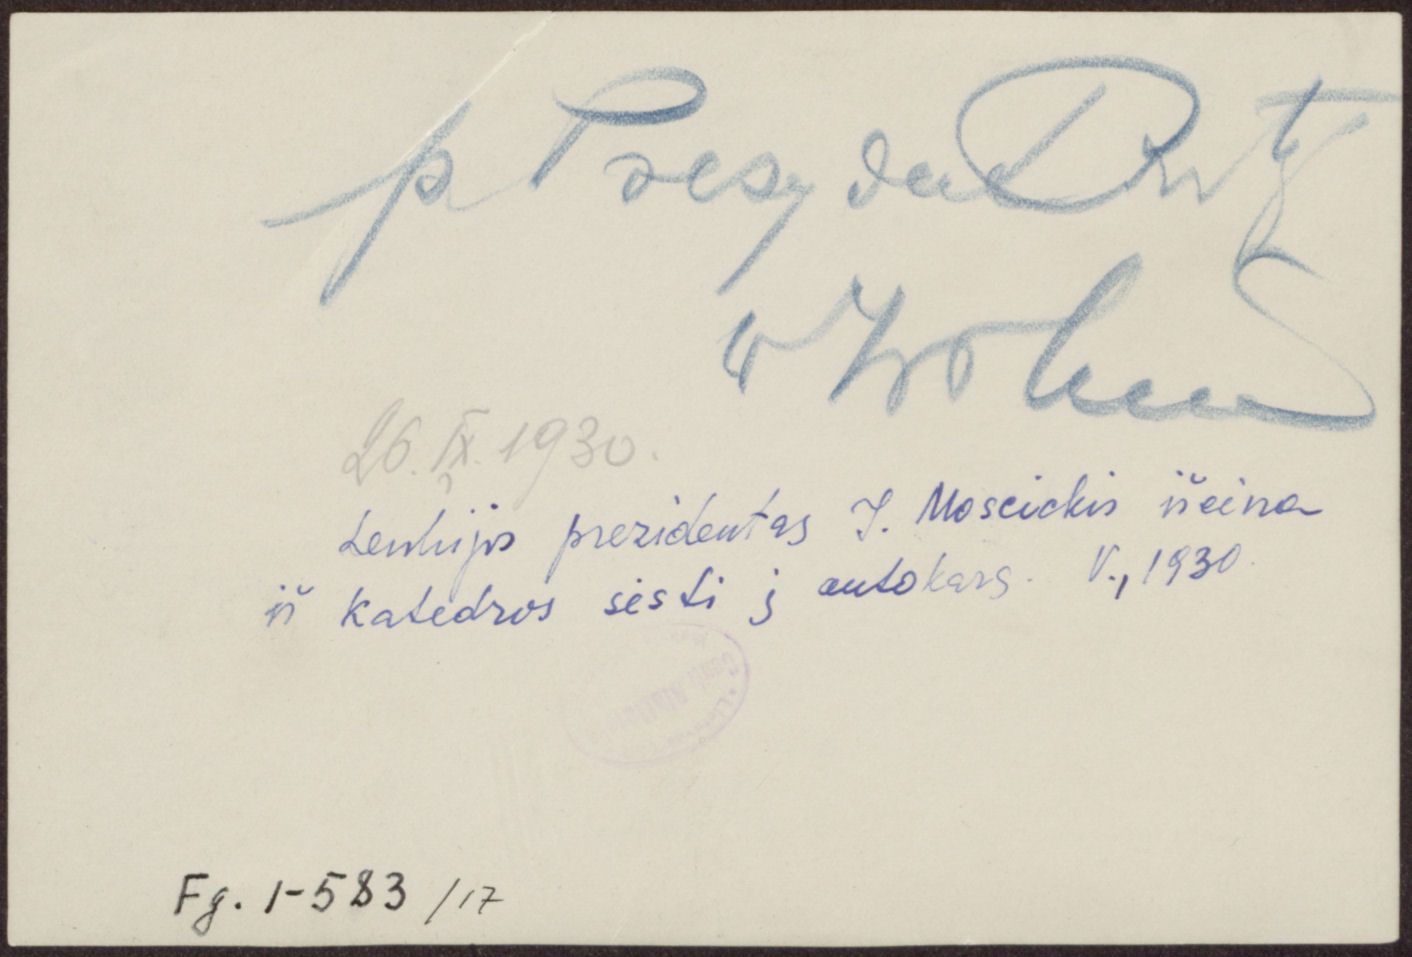 p Prezydent
w
26. IX. 1930.
Lenkijos prezidentas I. Moscickis išeina
iš katedros sėsti į autokarą. V., 1930.
Fg. 1-583/17